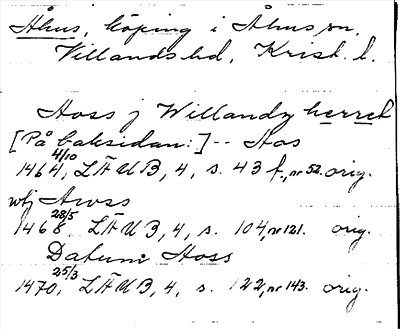 Åhus, köping i Åhus sn,
Villands hd, Krist. l.
Hoss j Willandz herret
[På baksidan:] -- Hos
1464 4/10, LÄUB, 4, s. 43 f, nr 52. orig.
wtj Awss
1468 28/5, LÄUB, 4, s. 104, nr 121. orig.
Datum Hoss
1470 25/3, LÄUB, 4, s. 122, nr 143. orig.